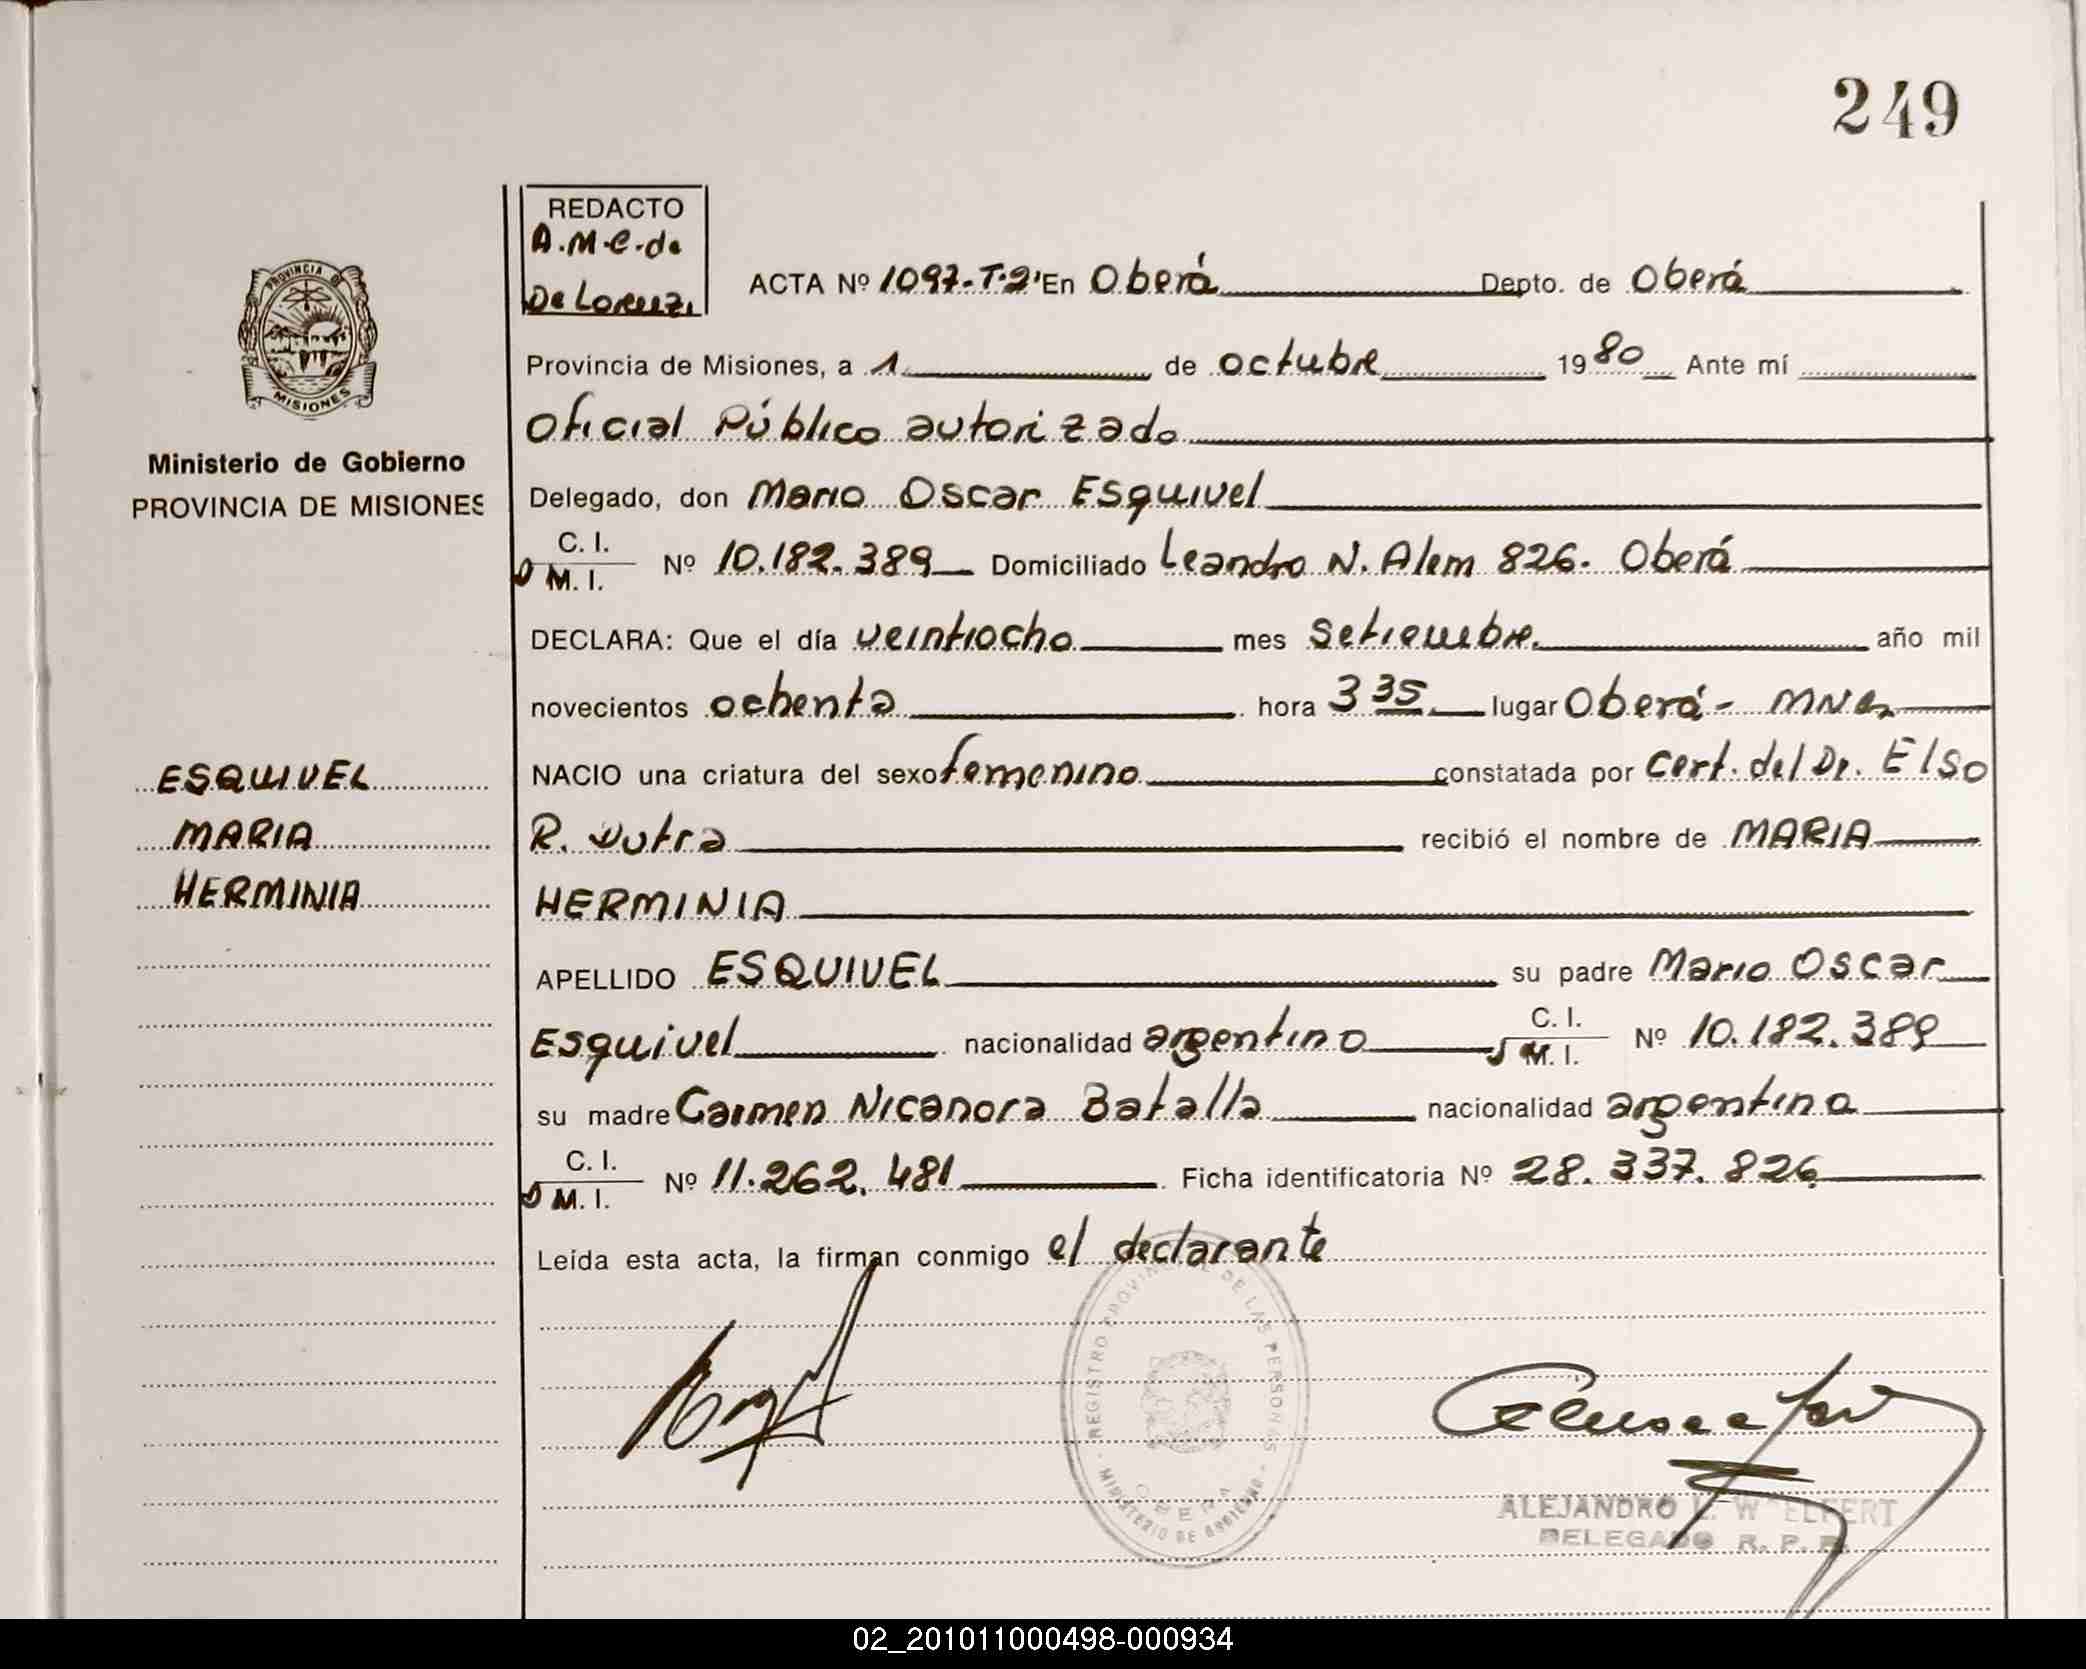 249
REDACTO
A.M.C. de
De Lorenzi
ACTA Nº 1097-T-2º En Oberá Depto. de Oberá
Provincia de Misiones, a 1 de octubre 1980 Ante mí
Oficial Público autorizado
Delegado, don Mario Oscar Esquivel
C. I.
M. I. Nº 10.182.389 Domiciliado Leandro N. Alem 826. Oberá
DECLARA: Que el día veintiocho mes setiembre año mil
novecientos ochenta hora 3 35 lugar Oberá - Mnes
NACIO una criatura del sexo femenino constatada por cert. del Dr. Elso
R. Dutra recibió el nombre de MARIA
HERMINIA
APELLIDO ESQUIVEL su padre Mario Oscar
Esquivel nacionalidad argentino C. I. M. I. Nº 10.182.389
su madre Carmen Nicanora Batalla nacionalidad argentina
C. I.
M. I. Nº 11.262.481 Ficha identificatoria Nº 28.337.826
Leída esta acta, la firman conmigo el declarante
PROVINCIA DE
MISIONES
Ministerio de Gobierno
PROVINCIA DE MISIONES
ESQUIVEL
MARIA
HERMINIA
REGISTRO PROVINCIAL DE LAS PERSONAS
OBERA
MINISTERIO DE GOBIERNO
ALEJANDRO L.
DELEGADO R. P. P.
02_201011000498-000934